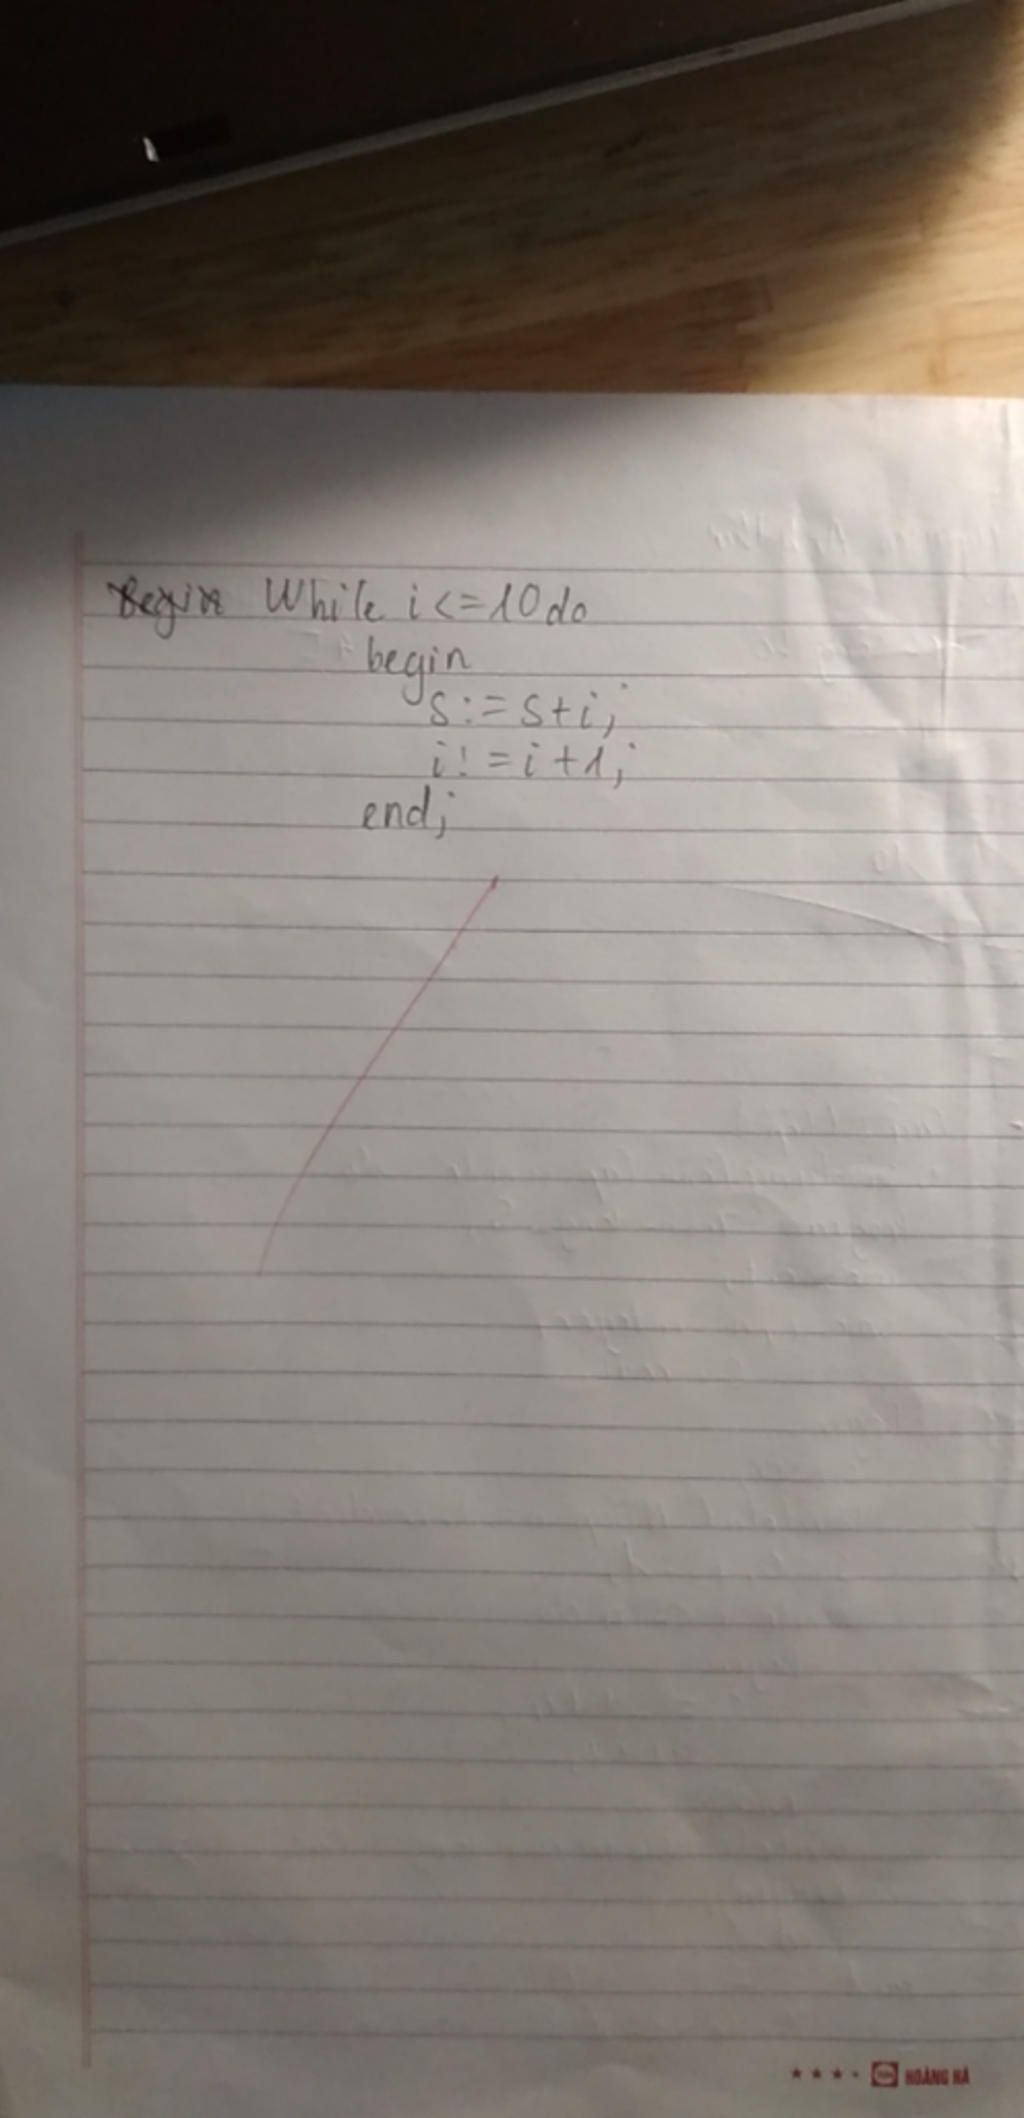 Begin While i <= 10 do
begin
s := s + i;
i != i + 1;
end;
HOÀNG HÀ